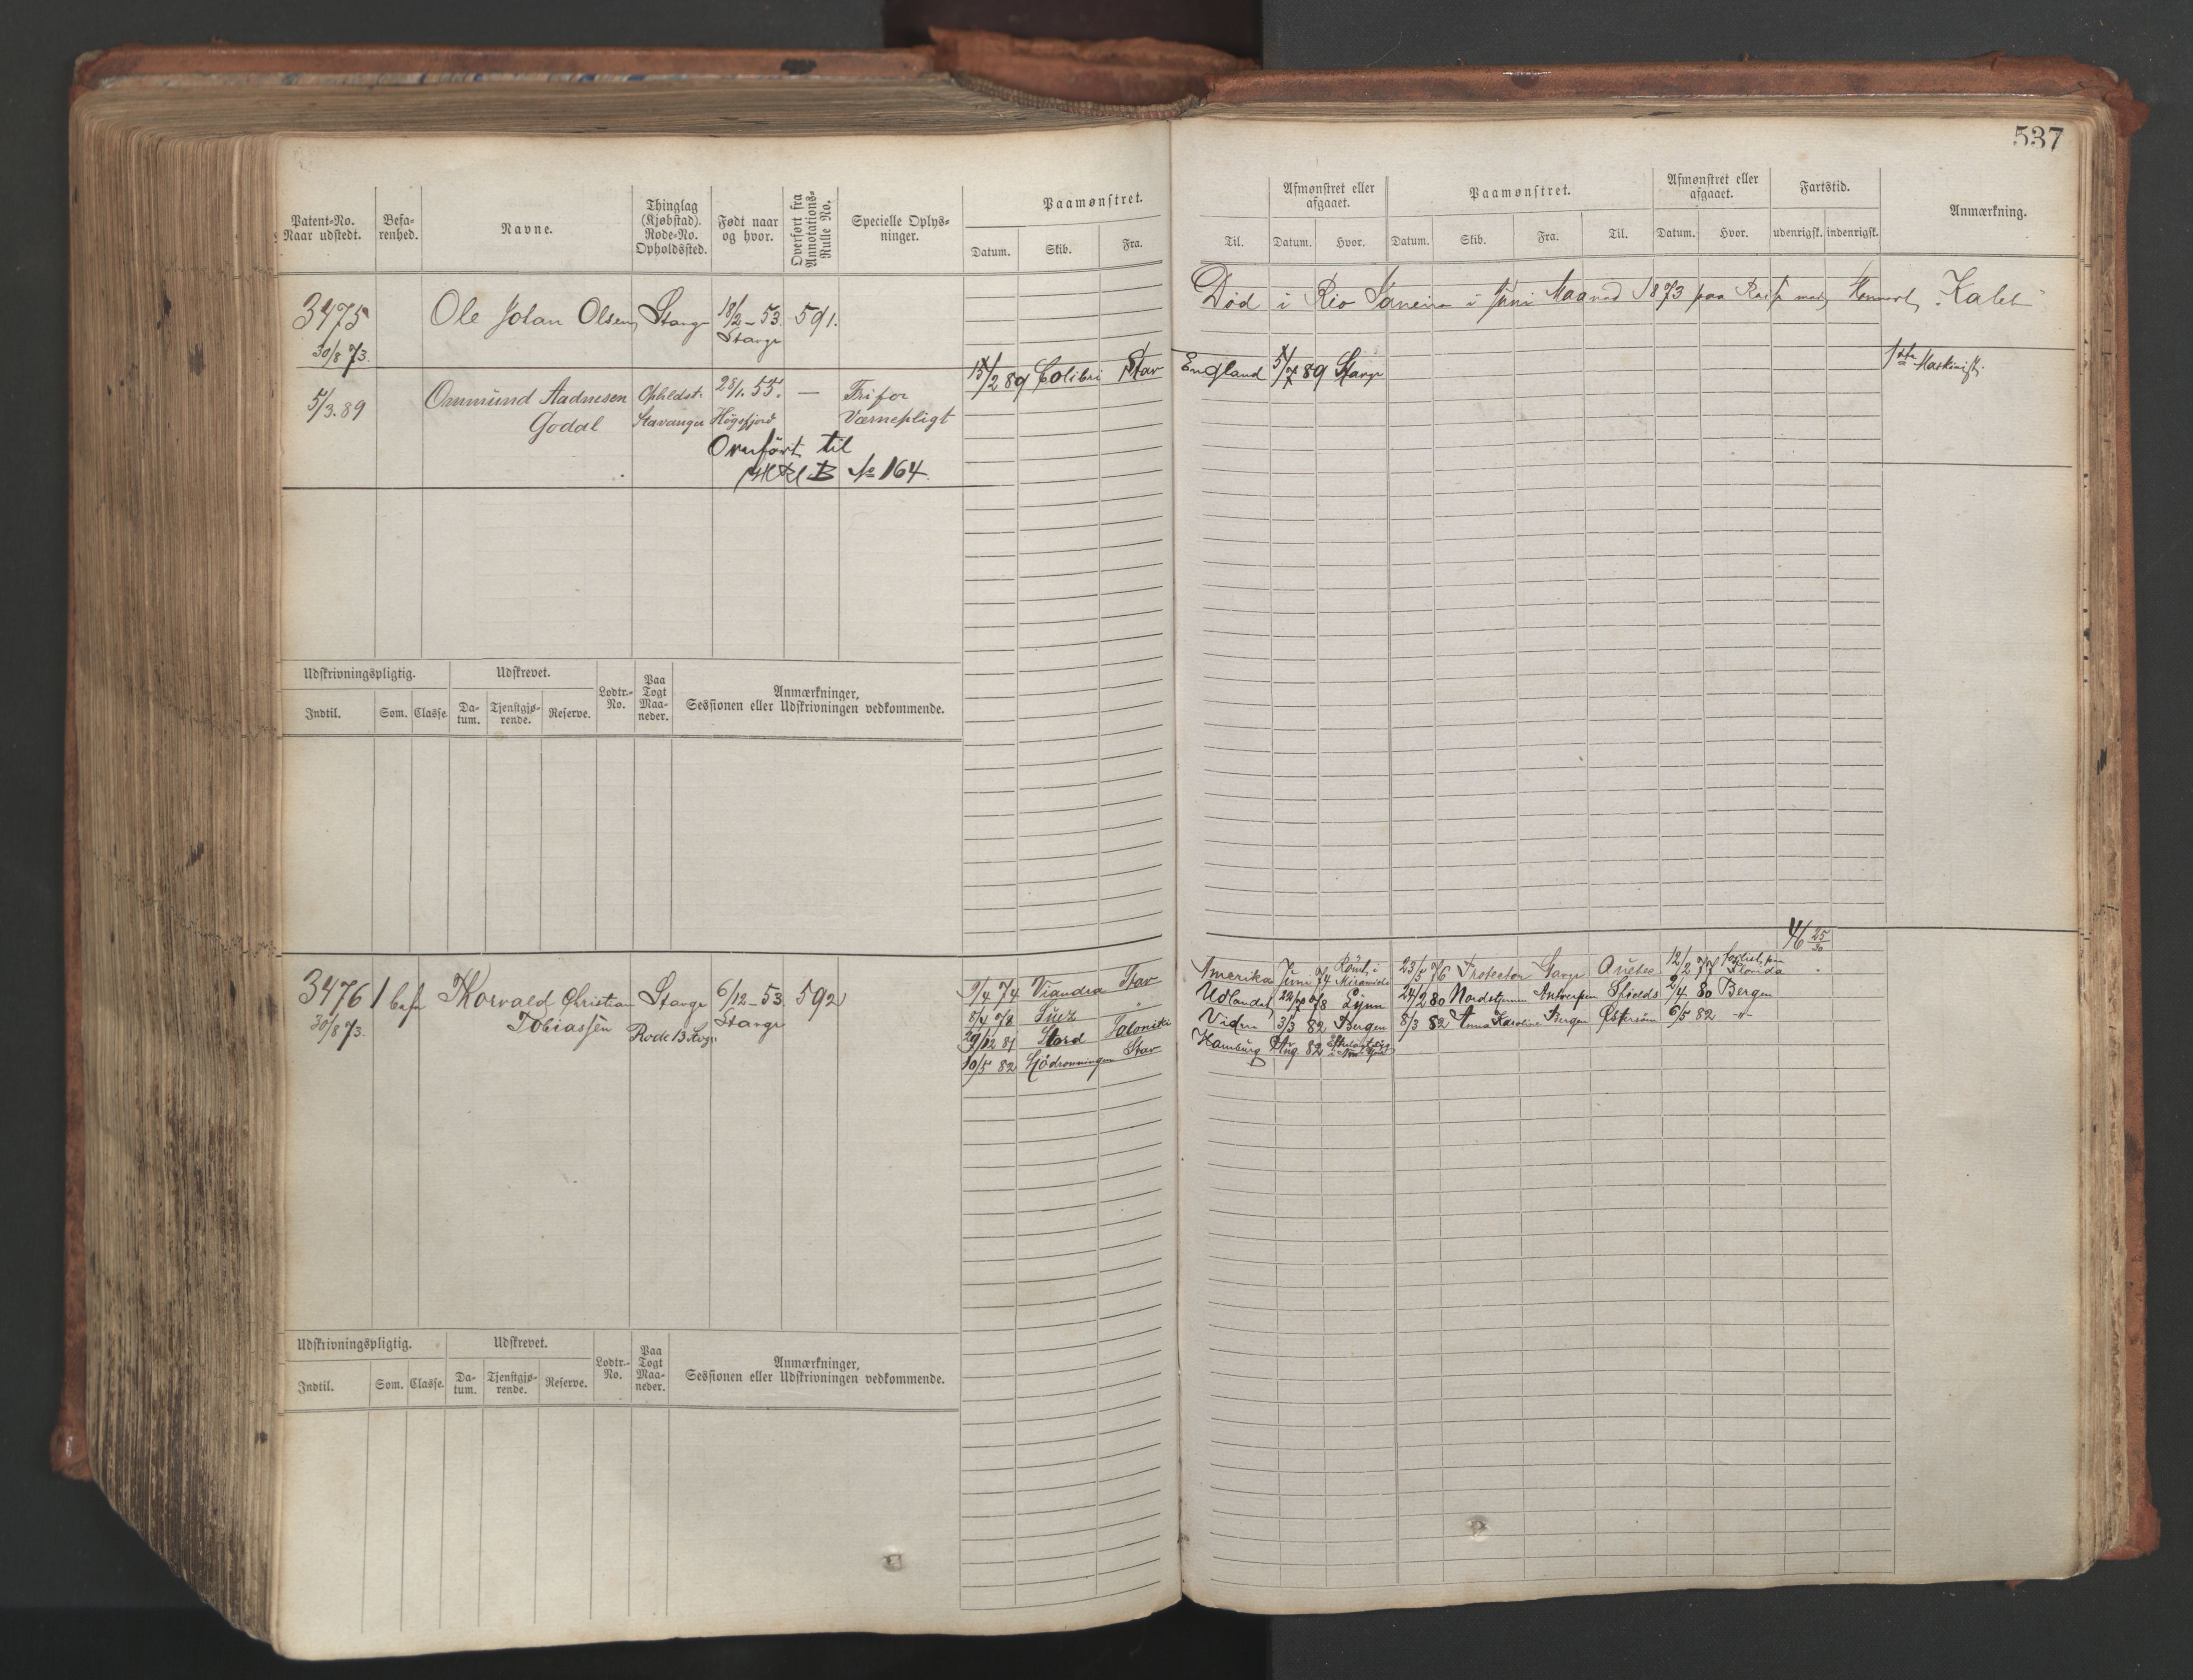 537
Patent-No. Naar udstedt.
Befa-renhed.
Navne.
Thinglag (Kjøbstad). Rode-No. Opholdssted.
Født naar og hvor.
Overført fra Annotations-Rulle No.
Specielle Oplys-ninger.
Paamønstret.
Datum. Skib. Fra.
Til.
Afmønstret eller afgaaet.
Datum. Hvor.
Paamønstret.
Datum. Skib. Fra. Til.
Afmønstret eller afgaaet.
Datum. Hvor.
Fartstid.
udenrigsk. indenrigsk.
Anmærkning.
3475 Ole Johan Olsen Stavgr 18/2-53 591.
30/8 73. Stavgr
Død i Rio Janeiro i Juni Maaned 1873 paa Reise med
5/3.89 Ommund Aadnesen Opholdst. 28/1.55. — Fri for
Godal Stavanger Høgsfjord Værnepligt
Overført til
B № 164.
15/2 89 Colibri Stav England 5/7 89 Stavgr
Maskinist.
Udskrivningspligtig. Udskrevet. Lodtr.-No. Paa Togt Maa-neder. Anmærkninger, Sessionen eller Udskrivningen vedkommende.
Indtil. Som. Classe. Da-tum. Tjenstgjø-rende. Reserve.
3476 1 bef Thorvald Christian Stavgr 6/12-53 592
30/873. Tobiassen Rode 13 Stavgr
25/30
9/4 74 Viandra Stav Amerika Juni 74 Rømt i Miramichi 23/5 76 Protector Stavgr Quebec 12/2 77 Forlist Florida
8/4 78 Suez " Udlandet 22/ 78 Lynn 24/2 80 Nordstjernen Antwerpen Shields 2/4 80 Bergen
29/12 81 Stord Saloniki Videre 3/3 82 Bergen 8/3 82 Anna Karoline Bergen Østersøen 6/5 82 -"-
10/5 82 Sjødronningen Stav Hamburg Aug 82
Udskrivningspligtig. Udskrevet. Lodtr.-No. Paa Togt Maa-neder. Anmærkninger, Sessionen eller Udskrivningen vedkommende.
Indtil. Som. Classe. Da-tum. Tjenstgjø-rende. Reserve.